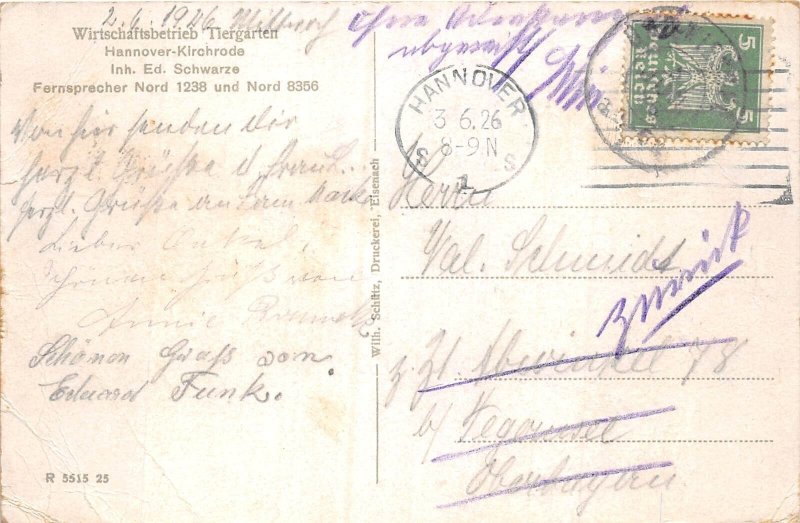 2.6.1926 Mittwoch
Ohne
Wirtschaftsbetrieb Tiergarten
Hannover-Kirchrode
Inh. Ed. Schwarze
Fernsprecher Nord 1238 und Nord 8356
Von hier senden dir
herzl. Grüße
herzl. Grüße
Lieber Onkel,
Schönen Gruß von
Annie
Schönen Gruß von
Eduard Funk.
R 5515 25
Wilh. Schütz, Druckerei, Eisenach
HANNOVER
3.6.26
8-9 N
S 1 S
5 Deutsches Reich 5
Herrn
Val. Schmidt
zurück
z. Zt. Abwinkel 78
b/ Tegernsee
Oberbayern